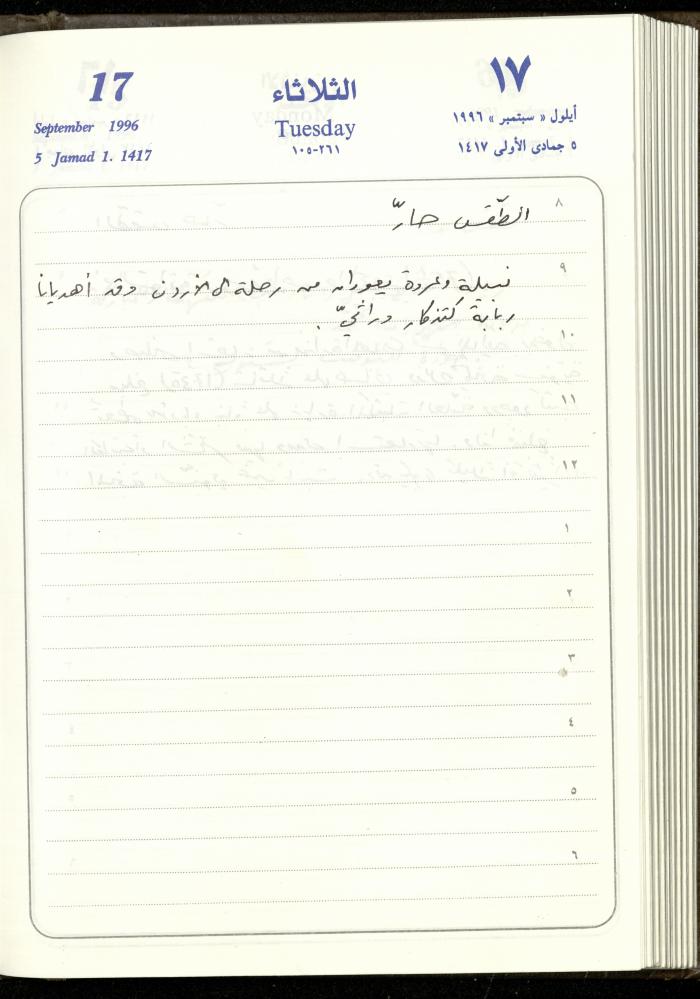 17
September 1996
5 Jamad 1. 1417
الثلاثاء
Tuesday
٢٦١-١٠٥
١٧
أيلول « سبتمبر » ١٩٩٦
٥ جمادى الأولى ١٤١٧
٨
الطقس حارّ
٩
نبيلة وعروة يعودان من رحلة الى الأردن وقد أهديانا
ربابة كتذكار وراثيّ .
١٠
١١
١٢
١
٢
٣
٤
٥
٦